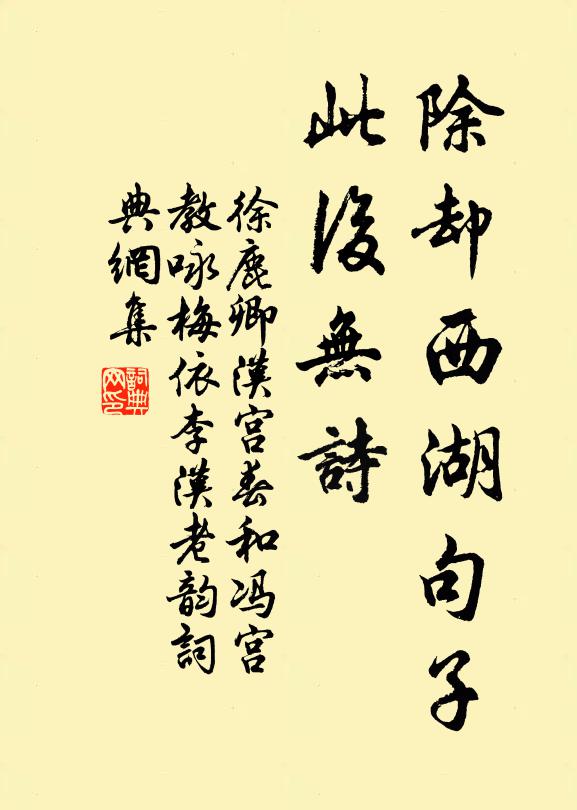 除却西湖句子
此後無詩
徐鹿卿漢宮春和冯宮
教咏梅依李漢老韵詞
典網集
詞典网印